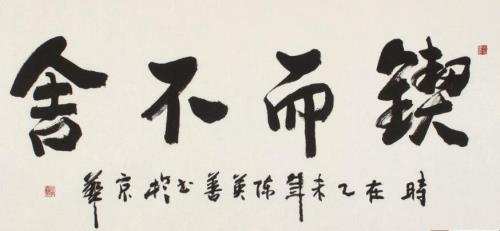 鍥而不舍
時在乙未年陈英善书於京華